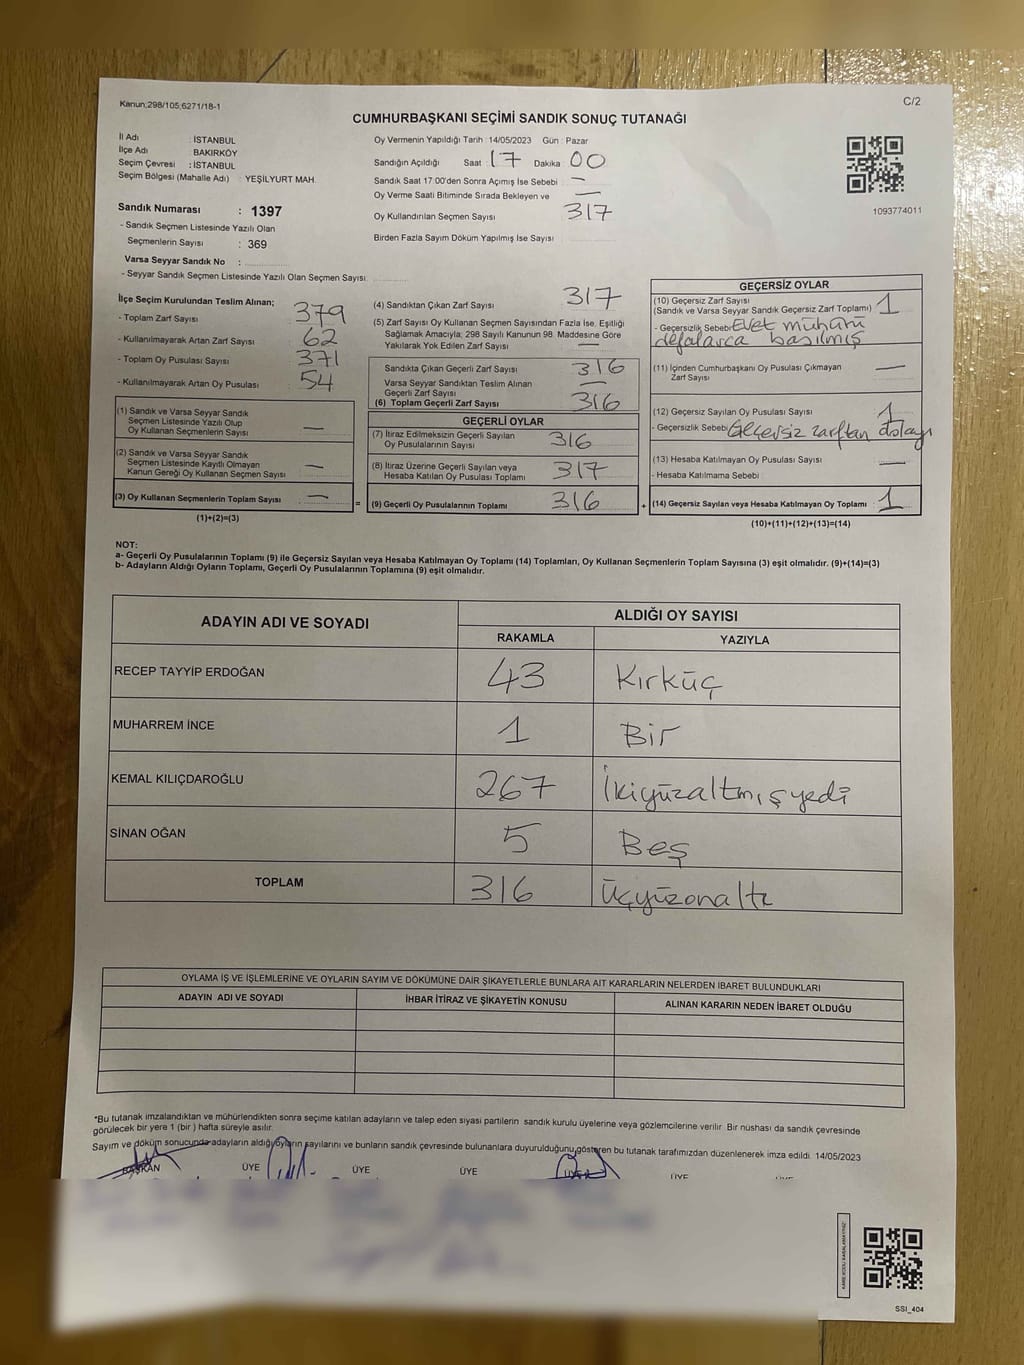 Kanun;298/105;6271/18-1
C/2
CUMHURBAŞKANI SEÇİMİ SANDIK SONUÇ TUTANAĞI
İl Adı : İSTANBUL
İlçe Adı : BAKIRKÖY
Seçim Çevresi : İSTANBUL
Seçim Bölgesi (Mahalle Adı) : YEŞİLYURT MAH.
Sandık Numarası : 1397
- Sandık Seçmen Listesinde Yazılı Olan
Seçmenlerin Sayısı : 369
Varsa Seyyar Sandık No :
- Seyyar Sandık Seçmen Listesinde Yazılı Olan Seçmen Sayısı:
Oy Vermenin Yapıldığı Tarih : 14/05/2023 Gün : Pazar
Sandığın Açıldığı Saat : 17 Dakika : 00
Sandık Saat 17:00'den Sonra Açımış İse Sebebi : —
Oy Verme Saati Bitiminde Sırada Bekleyen ve —
Oy Kullandırılan Seçmen Sayısı 317
Birden Fazla Sayım Döküm Yapılmış İse Sayısı
1093774011
İlçe Seçim Kurulundan Teslim Alınan;
- Toplam Zarf Sayısı 379
- Kullanılmayarak Artan Zarf Sayısı 62
- Toplam Oy Pusulası Sayısı 371
- Kullanılmayarak Artan Oy Pusulası 54
(1) Sandık ve Varsa Seyyar Sandık
Seçmen Listesinde Yazılı Olup
Oy Kullanan Seçmenlerin Sayısı —
(2) Sandık ve Varsa Seyyar Sandık
Seçmen Listesinde Kayıtlı Olmayan
Kanun Gereği Oy Kullanan Seçmen Sayısı —
(3) Oy Kullanan Seçmenlerin Toplam Sayısı —
(1)+(2)=(3)
=
(4) Sandıktan Çıkan Zarf Sayısı 317
(5) Zarf Sayısı Oy Kullanan Seçmen Sayısından Fazla İse, Eşitliği
Sağlamak Amacıyla; 298 Sayılı Kanunun 98. Maddesine Göre
Yakılarak Yok Edilen Zarf Sayısı —
Sandıkta Çıkan Geçerli Zarf Sayısı 316
Varsa Seyyar Sandıktan Teslim Alınan
Geçerli Zarf Sayısı —
(6) Toplam Geçerli Zarf Sayısı 316
GEÇERLİ OYLAR
(7) İtiraz Edilmeksizin Geçerli Sayılan
Oy Pusulalarının Sayısı 316
(8) İtiraz Üzerine Geçerli Sayılan veya
Hesaba Katılan Oy Pusulaları Toplamı 317
(9) Geçerli Oy Pusulalarının Toplamı 316
+
GEÇERSİZ OYLAR
(10) Geçersiz Zarf Sayısı
(Sandık ve Varsa Seyyar Sandık Geçersiz Zarf Toplamı) 1
- Geçersizlik Sebebi Evet mühürü
defalarca basılmış
(11) İçinden Cumhurbaşkanı Oy Pusulası Çıkmayan
Zarf Sayısı —
(12) Geçersiz Sayılan Oy Pusulası Sayısı 1
- Geçersizlik Sebebi Geçersiz zarftan dolayı
(13) Hesaba Katılmayan Oy Pusulası Sayısı —
- Hesaba Katılmama Sebebi :
(14) Geçersiz Sayılan veya Hesaba Katılmayan Oy Toplamı : 1
(10)+(11)+(12)+(13)=(14)
NOT:
a- Geçerli Oy Pusulalarının Toplamı (9) ile Geçersiz Sayılan veya Hesaba Katılmayan Oy Toplamı (14) Toplamları, Oy Kullanan Seçmenlerin Toplam Sayısına (3) eşit olmalıdır. (9)+(14)=(3)
b- Adayların Aldığı Oyların Toplamı, Geçerli Oy Pusulalarının Toplamına (9) eşit olmalıdır.
ADAYIN ADI VE SOYADI
ALDIĞI OY SAYISI
RAKAMLA YAZIYLA
RECEP TAYYİP ERDOĞAN 43 Kırküç
MUHARREM İNCE 1 Bir
KEMAL KILIÇDAROĞLU 267 İkiyüzaltmışyedi
SİNAN OĞAN 5 Beş
TOPLAM 316 Üçyüzonaltı
OYLAMA İŞ VE İŞLEMLERİNE VE OYLARIN SAYIM VE DÖKÜMÜNE DAİR ŞİKAYETLERLE BUNLARA AİT KARARLARIN NELERDEN İBARET BULUNDUKLARI
ADAYIN ADI VE SOYADI İHBAR İTİRAZ VE ŞİKAYETİN KONUSU ALINAN KARARIN NEDEN İBARET OLDUĞU
*Bu tutanak imzalandıktan ve mühürlendikten sonra seçime katılan adayların ve talep eden siyasi partilerin sandık kurulu üyelerine veya gözlemcilerine verilir. Bir nüshası da sandık çevresinde
görülecek bir yere 1 (bir ) hafta süreyle asılır.
Sayım ve döküm sonucunda adayların aldığı oyların sayılarını ve bunların sandık çevresinde bulunanlara duyurulduğunu gösteren bu tutanak tarafımızdan düzenlenerek imza edildi. 14/05/2023
BAŞKAN ÜYE ÜYE ÜYE ÜYE ÜYE ÜYE
SSI_404